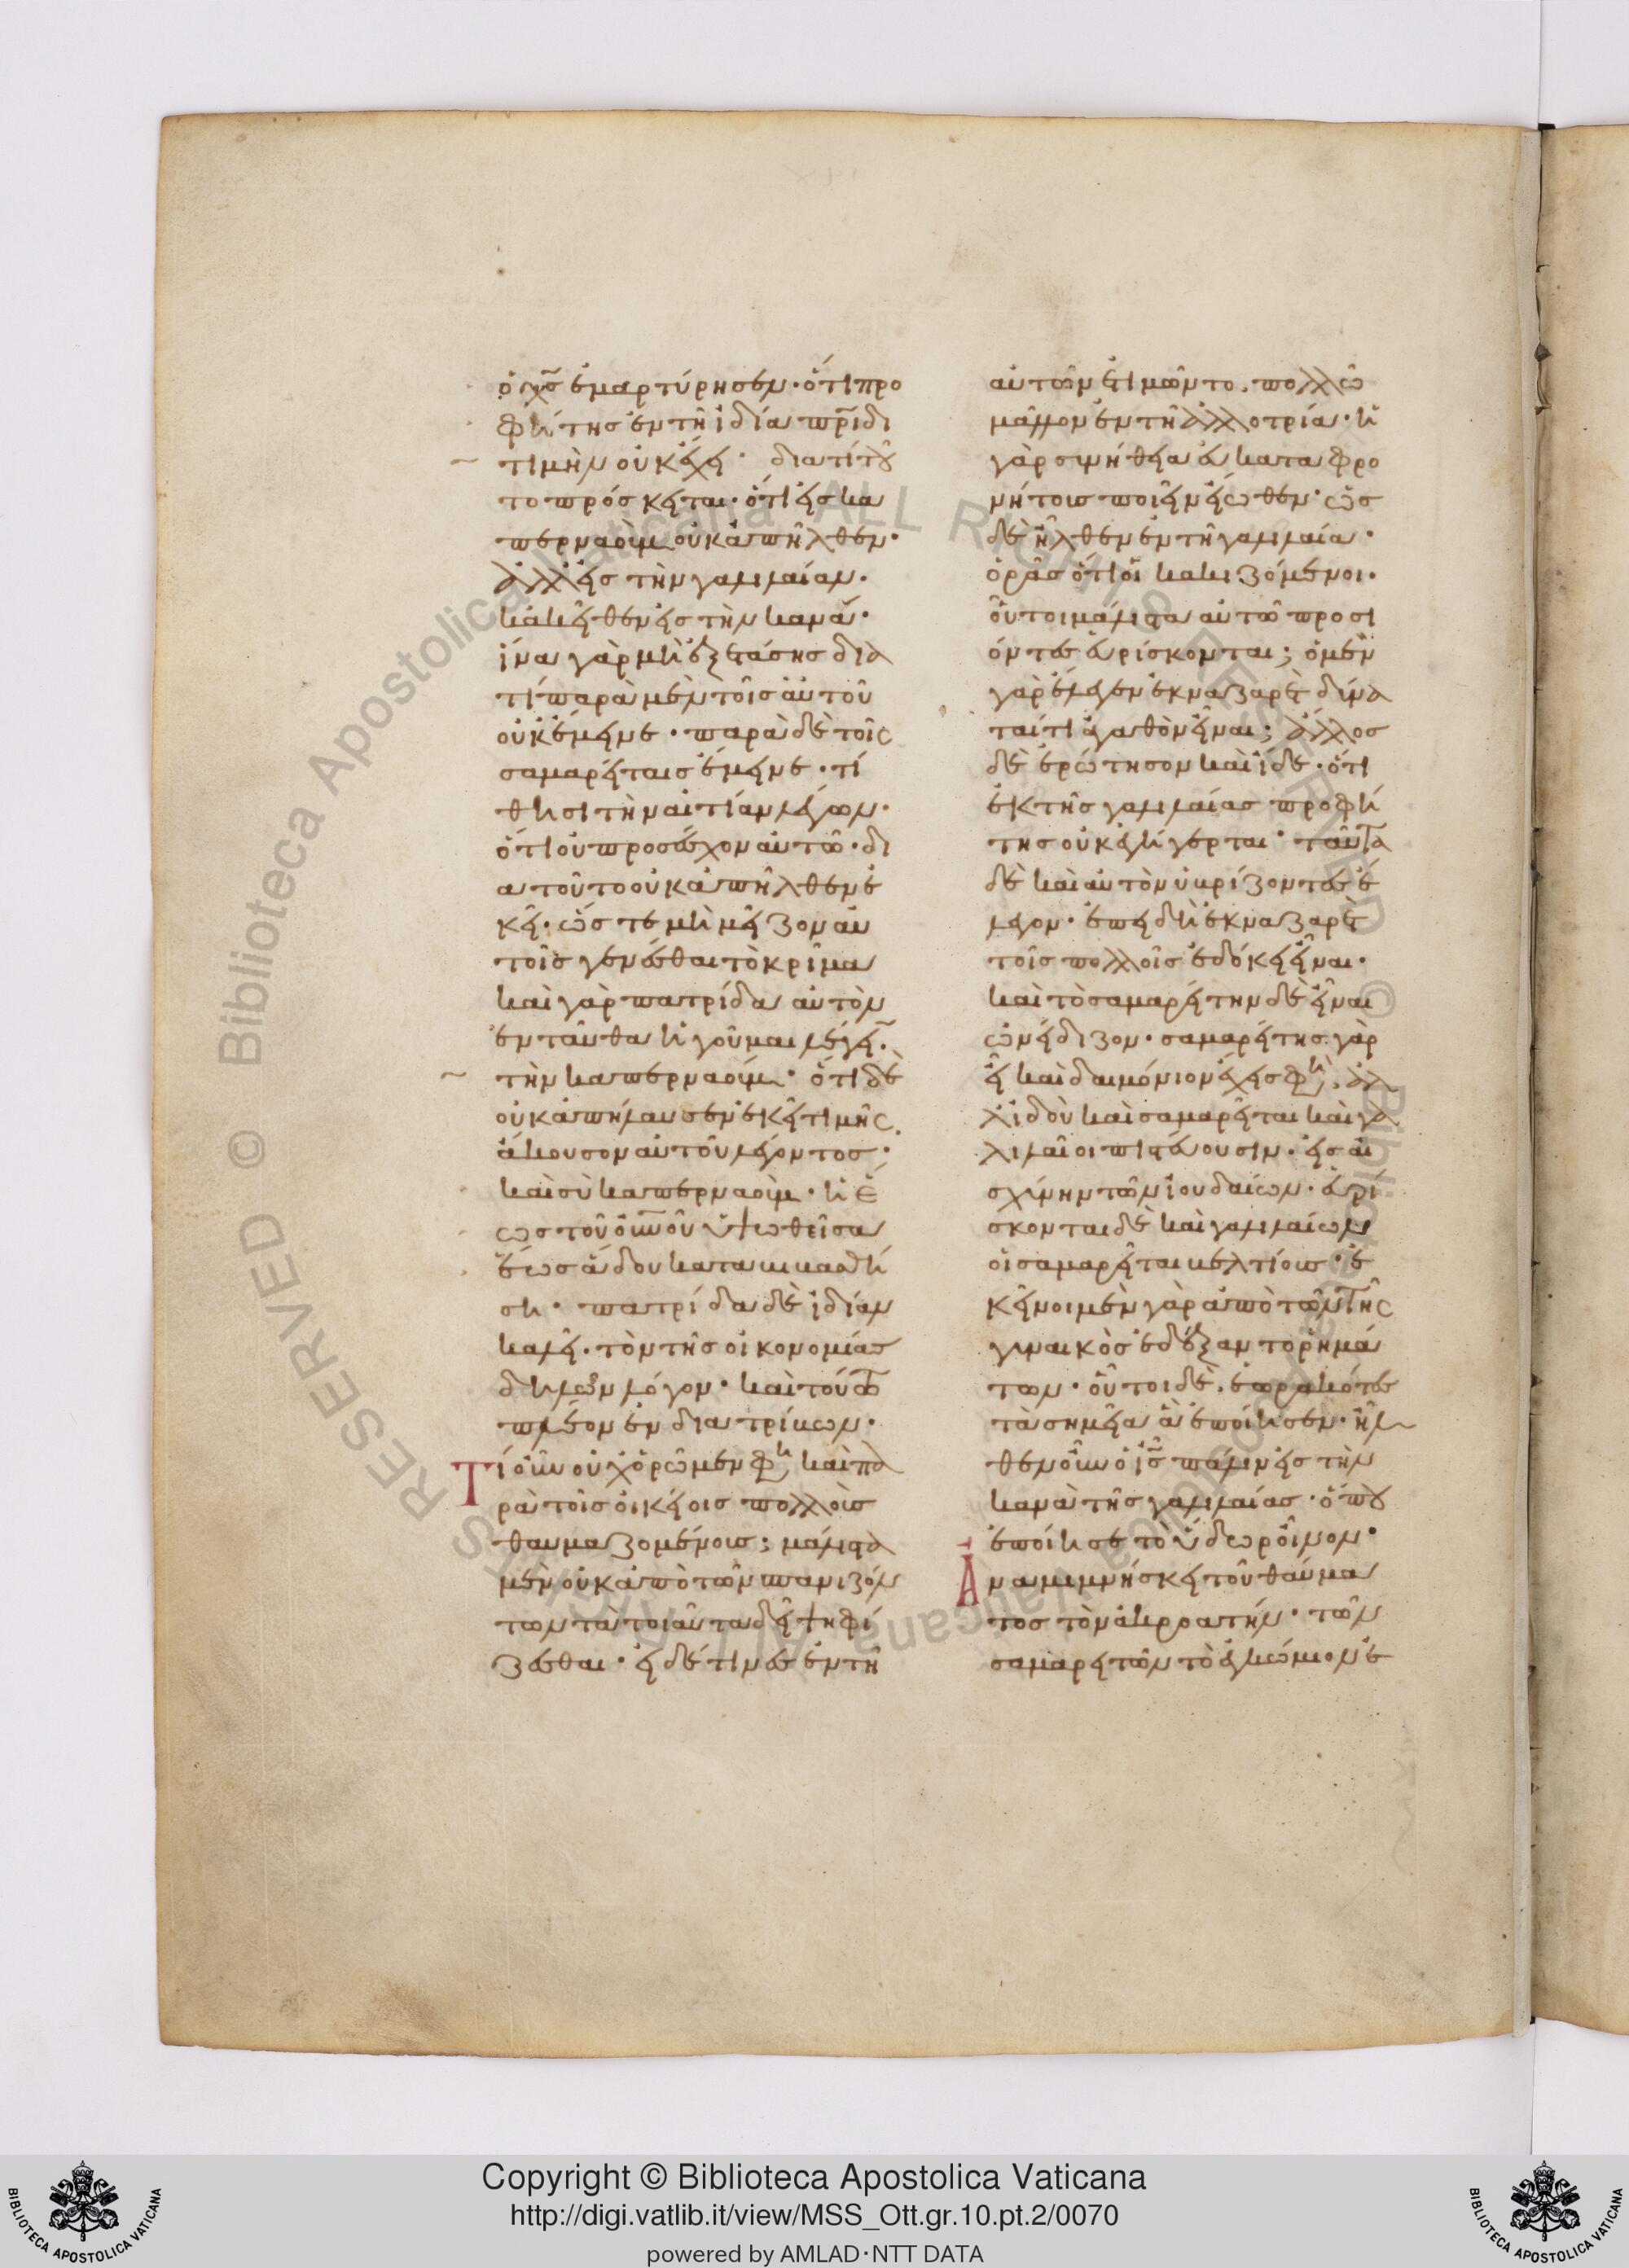 ὁ χς ἐμαρτύρησεν· ὅτι προ
φήτης ἐν τῆ ἰδία πρίδι
τιμὴν οὐκ ἔχει· διατί του
το πρόσκειται· ὅτι εἰς κα
περναοὺμ οὐκ ἀπῆλθεν·
ἀλλ εἰς τὴν γαλιλαίαν·
κἀκεῖθεν εἰς τὴν κανᾶ·
ἵνα γὰρ μὴ ἐξετάσης δια
τί παρὰ μὲν τοῖς αὐτοῦ
οὐκ ἔμεινε· παρὰ δὲ τοῖς
σαμαρείταις ἔμεινε· τί
θησι τὴν αἰτίαν λέγων·
ὅτι οὐ προσεῖχον αὐτῶ· δι
α τοῦτο οὐκ ἀπῆλθεν ἐ
κεῖ· ὥστε μὴ μεῖζον αὐ
τοῖς γενέσθαι τὸ κρῖμα
καὶ γὰρ πατρίδα αὐτὸν
ἐνταῦθα ἡγοῦμαι λέγει̅·
τὴν καπερναούμ· ὅτι δὲ
οὐκ ἀπήλαυσεν ἐκεῖ τιμῆς
ἄκουσον αὐτοῦ λέγοντος·
καὶ σὺ καπερναοὺμ· ἡ ἕ
ως τοῦ οὐνοῦ ὑψωθεῖσα
ἕως ἅδου καταβιβασθή
ση· πατρίδα δὲ ἰδίαν
καλεῖ· τὸν τῆς οἰκονομίας
δηλῶν λόγον· καὶ τούτω
πλέον ἐνδιατρίβων·
Τί οὖν οὐχ ὁρῶμεν φη καὶ πα
ρὰ τοῖς οἰκείοις πολλοὺς
θαυμαζομένους; μάλιστα
μὲν οὐκ ἀπὸ τῶν σπανιζόν
των τὰ τοιαῦτα δεῖ ψηφί
ζεσθαι· εἰ δέ τινες ἐν τῆ
αὐτῶν ἐτιμῶντο, πολλῶ
μᾶλλον ἐν τῆ ἀλλοτρία· ἡ
γὰρ συνήθεια εὐκαταφρο
νήτους ποιεῖν εἴωθεν· ὡς
δὲ ἦλθεν ἐν τῆ γαλιλαία·
ὁρᾶς ὅτι οἱ κακιζόμενοι·
οὗτοι μάλιστα αὐτῶ προσι
όντες εὑρίσκονται; ὁ μὲν
γὰρ ἔλεγεν ἐκ ναζαρὲτ δύνα
ταί τι ἀγαθὸν εἶναι; ἄλλος
δὲ ἐρώτησον καὶ ἴδε· ὅτι
ἐκ τῆς γαλιλαίας προφή
της οὐκ ἐγήγερται· ταῦτα
δὲ καὶ αὐτὸν ὑβρίζοντες ἔ
λεγον· ἐπειδὴ ἐκ ναζαρὲτ
τοῖς πολλοῖς ἐδόκει εἶναι·
καὶ τὸ σαμαρείτην δὲ εἶναι
ὠνείδιζον· σαμαρείτης γὰρ
εἶ καὶ δαιμόνιον ἔχεις φη, ἀλ
λ ἰδοὺ καὶ σαμαρεῖται καὶ γα
λιλαῖοι πιστεύουσιν· εἰς αἰ
σχύνην τῶν ἰουδαίων· εὑρί
σκονται δὲ καὶ γαλιλαίων
οἱ σαμαρεῖται βελτίους· ἐ
κεῖνοι μὲν γὰρ ἀπὸ τῶν τῆς
γυναικὸς ἐδέξαντο ῥημά
των· οὗτοι δὲ, ἑωρακότες
τὰ σημεῖα ἃ ἐποίησεν· ἦλ
θεν οὖν ὁ ἰς πάλιν εἰς τὴν
κανὰ τῆς γαλιλαίας· ὅπου
ἐποίησε τὸ ὕδωρ οἶνον·
Ἀναμιμνήσκει τοῦ θαύμα
τος τὸν ἀκροατήν· τῶν
σαμαρειτῶν τὸ ἐγκώμιον ἐ
Copyright © Biblioteca Apostolica Vaticana
http://digi.vatlib.it/view/MSS_Ott.gr.10.pt.2/0070
powered by AMLAD·NTT DATA